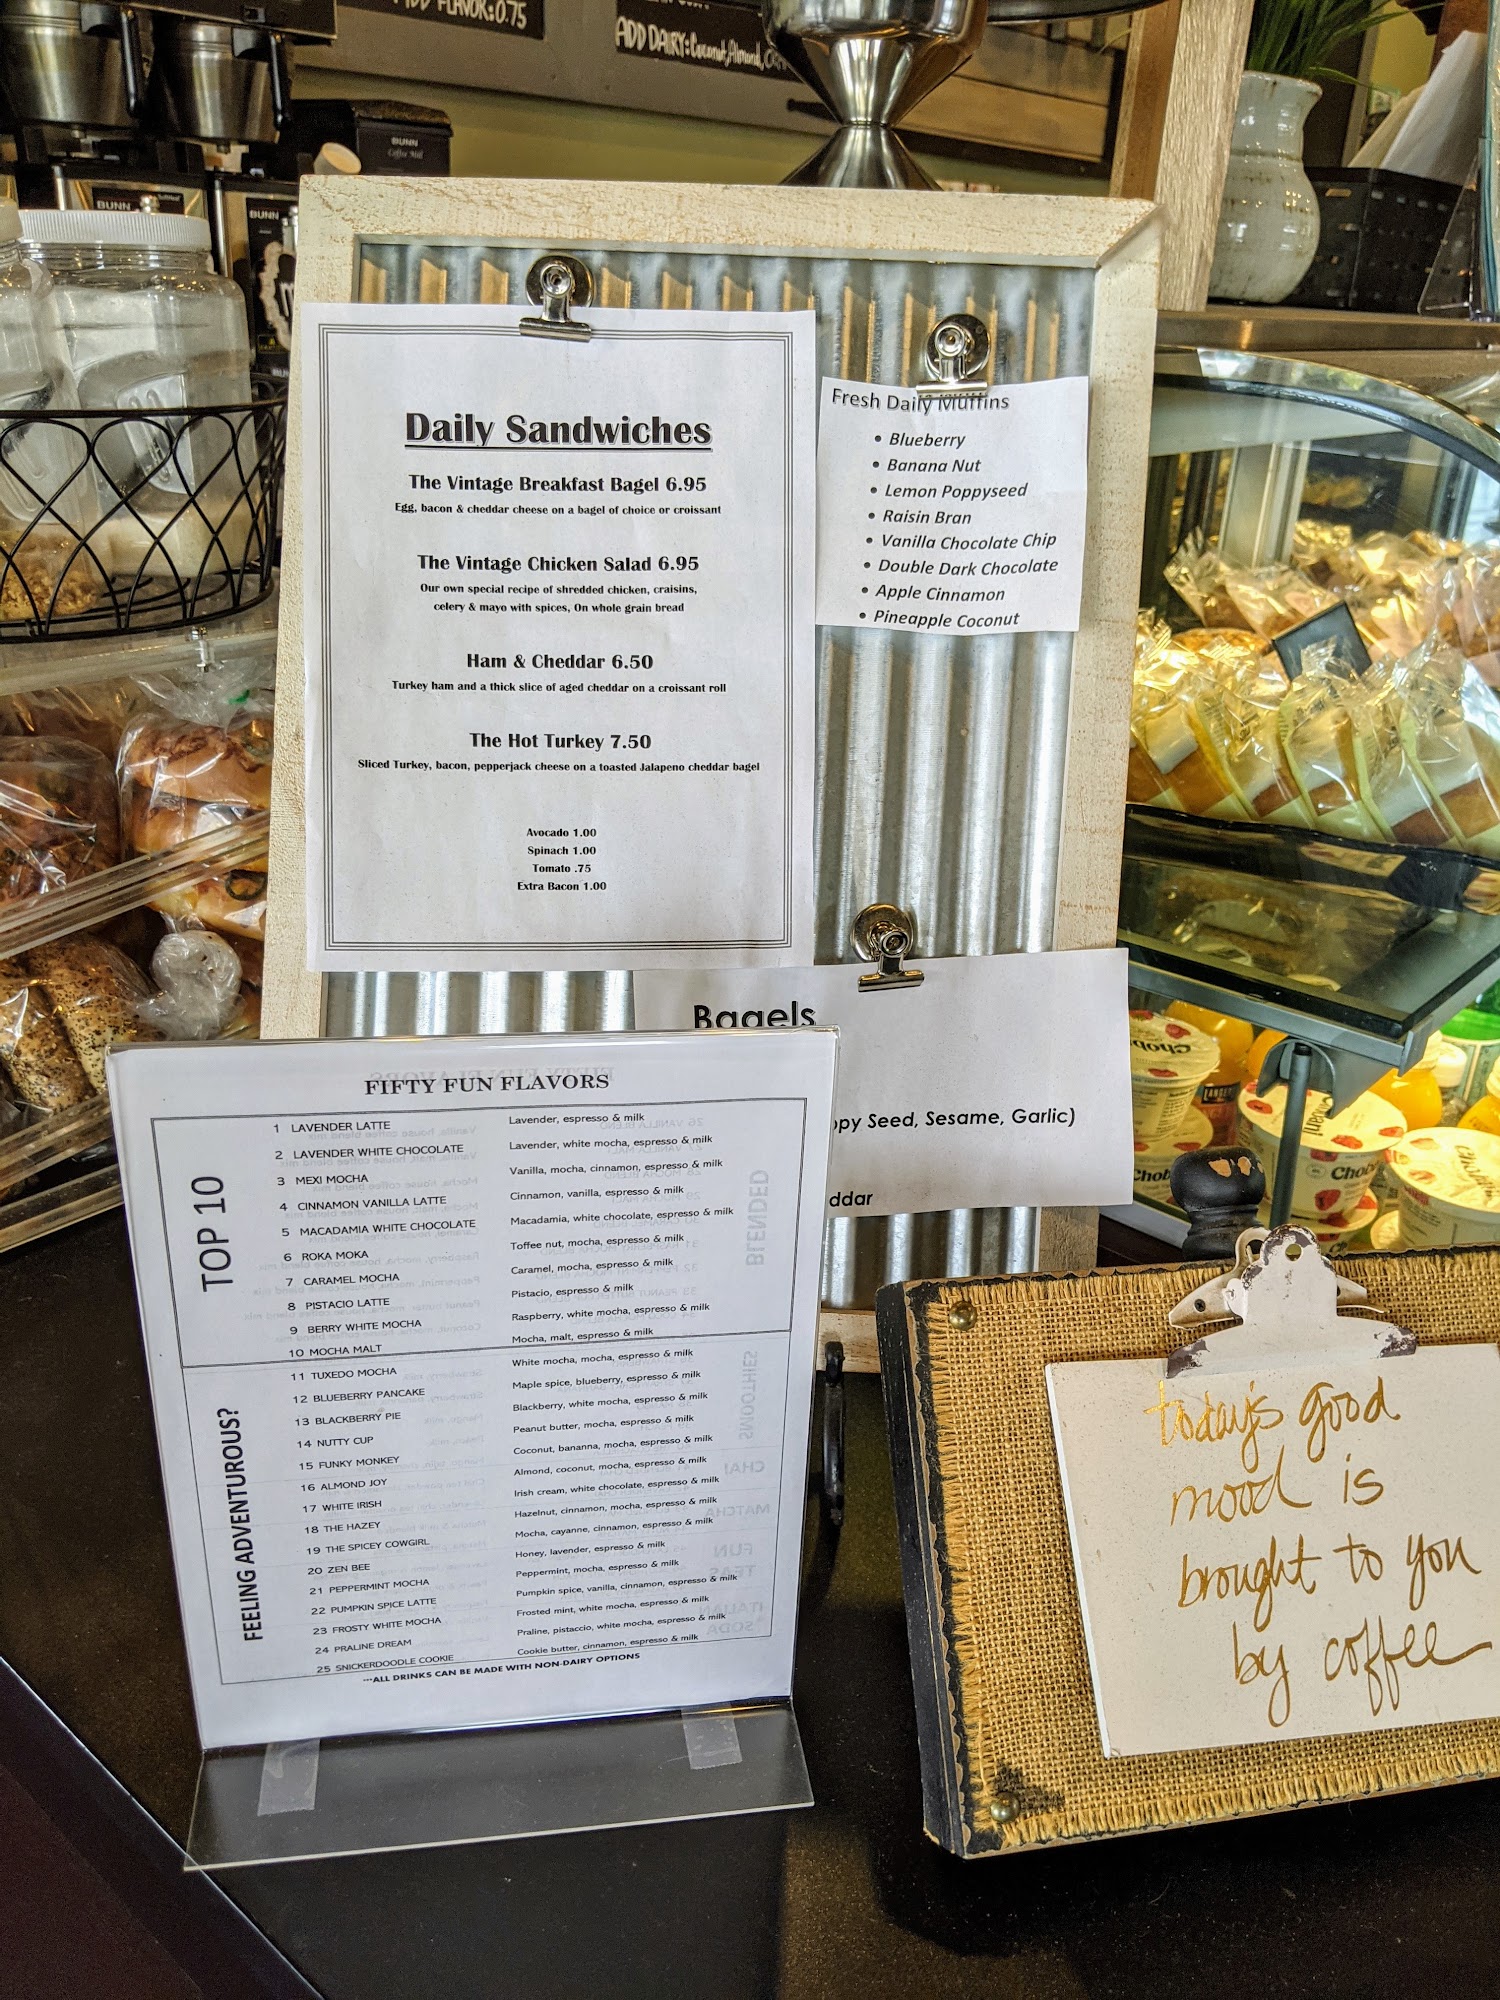 ADD FLAVOR:0.75
ADD DAIRY: Coconut, Almond,
BUNN
Coffee Mill
BUNN
BUNN
Daily Sandwiches
The Vintage Breakfast Bagel 6.95
Egg, bacon & cheddar cheese on a bagel of choice or croissant
The Vintage Chicken Salad 6.95
Our own special recipe of shredded chicken, craisins,
celery & mayo with spices, On whole grain bread
Ham & Cheddar 6.50
Turkey ham and a thick slice of aged cheddar on a croissant roll
The Hot Turkey 7.50
Sliced Turkey, bacon, pepperjack cheese on a toasted Jalapeno cheddar bagel
Avocado 1.00
Spinach 1.00
Tomato .75
Extra Bacon 1.00
Fresh Daily Muffins
• Blueberry
• Banana Nut
• Lemon Poppyseed
• Raisin Bran
• Vanilla Chocolate Chip
• Double Dark Chocolate
• Apple Cinnamon
• Pineapple Coconut
Bagels
ppy Seed, Sesame, Garlic)
ddar
FIFTY FUN FLAVORS
TOP 10
1 LAVENDER LATTE Lavender, espresso & milk
2 LAVENDER WHITE CHOCOLATE Lavender, white mocha, espresso & milk
3 MEXI MOCHA Vanilla, mocha, cinnamon, espresso & milk
4 CINNAMON VANILLA LATTE Cinnamon, vanilla, espresso & milk
5 MACADAMIA WHITE CHOCOLATE Macadamia, white chocolate, espresso & milk
6 ROKA MOKA Toffee nut, mocha, espresso & milk
7 CARAMEL MOCHA Caramel, mocha, espresso & milk
8 PISTACIO LATTE Pistacio, espresso & milk
9 BERRY WHITE MOCHA Raspberry, white mocha, espresso & milk
10 MOCHA MALT Mocha, malt, espresso & milk
FEELING ADVENTUROUS?
11 TUXEDO MOCHA White mocha, mocha, espresso & milk
12 BLUEBERRY PANCAKE Maple spice, blueberry, espresso & milk
13 BLACKBERRY PIE Blackberry, white mocha, espresso & milk
14 NUTTY CUP Peanut butter, mocha, espresso & milk
15 FUNKY MONKEY Coconut, bananna, mocha, espresso & milk
16 ALMOND JOY Almond, coconut, mocha, espresso & milk
17 WHITE IRISH Irish cream, white chocolate, espresso & milk
18 THE HAZEY Hazelnut, cinnamon, mocha, espresso & milk
19 THE SPICEY COWGIRL Mocha, cayanne, cinnamon, espresso & milk
20 ZEN BEE Honey, lavender, espresso & milk
21 PEPPERMINT MOCHA Peppermint, mocha, espresso & milk
22 PUMPKIN SPICE LATTE Pumpkin spice, vanilla, cinnamon, espresso & milk
23 FROSTY WHITE MOCHA Frosted mint, white mocha, espresso & milk
24 PRALINE DREAM Praline, pistaccio, white mocha, espresso & milk
25 SNICKERDOODLE COOKIE Cookie butter, cinnamon, espresso & milk
***ALL DRINKS CAN BE MADE WITH NON-DAIRY OPTIONS
BLENDED
SMOOTHIES
CHAI
MATCHA
FUN
TEAS
ITALIAN
SODA
Chob
Chobani
Chob
Chobani
today's good
mood is
brought to you
by coffee